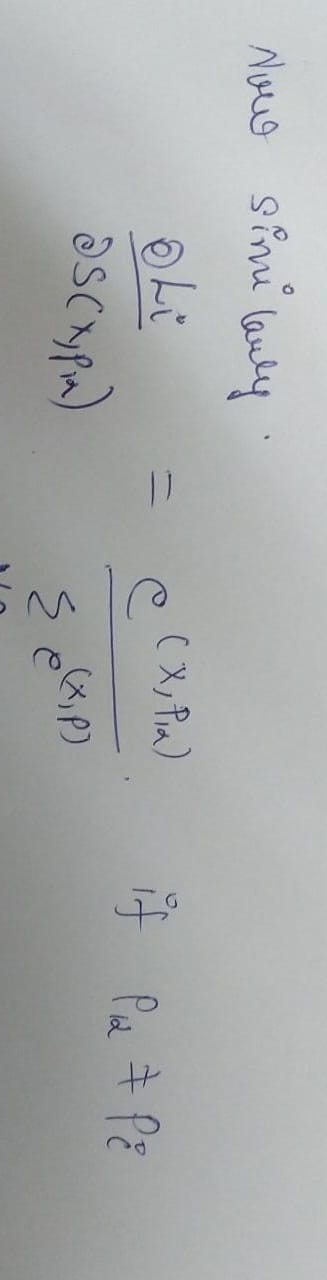 Now similarly.
∂Li / ∂S(x, pk) = e^(x, pk) / Σ e^(x, p) . if pk ≠ pi